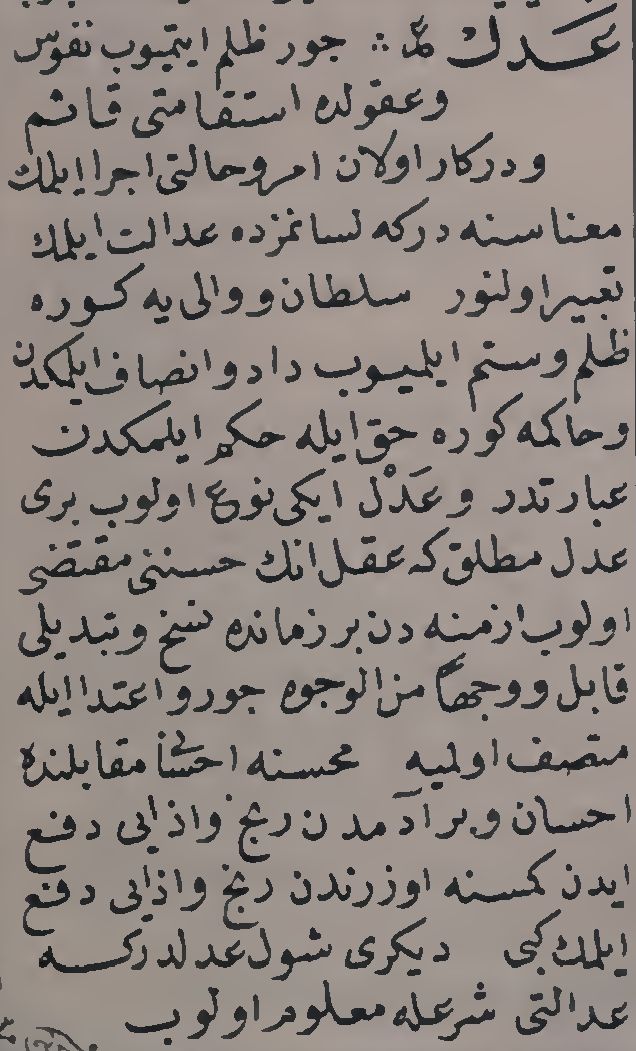 عدلك ∴ جور ظلم ايتميوب نفوس
وعقولده استقامتى قائم
ودركار اولان امر وحالتى اجرا ايلمك
معناسنه دركه لسانمزده عدالت ايلمك
تعبير اولنور سلطان ووالى يه كوره
ظلم وستم ايلميوب داد وانصاف ايلمكدن
وحاكمه كوره حق ايله حكم ايلمكدن
عبارتدر وعَدْل ايكى نوع اولوب برى
عدل مطلق كه عقل انك حسننى مقتضى
اولوب ازمنه دن بر زمانده نسخ وتبديلى
قابل ووجهًا من الوجوه جور واعتدا ايله
متصف اولميه محسنه احسانا مقابلنده
احسان وبر آدمدن رنج واذايى دفع
ايدن كمسنه اوزرندن رنج واذايى دفع
ايلمك كبى ديكرى شول عدلدركه
عدالتى شرعله معلوم اولوب